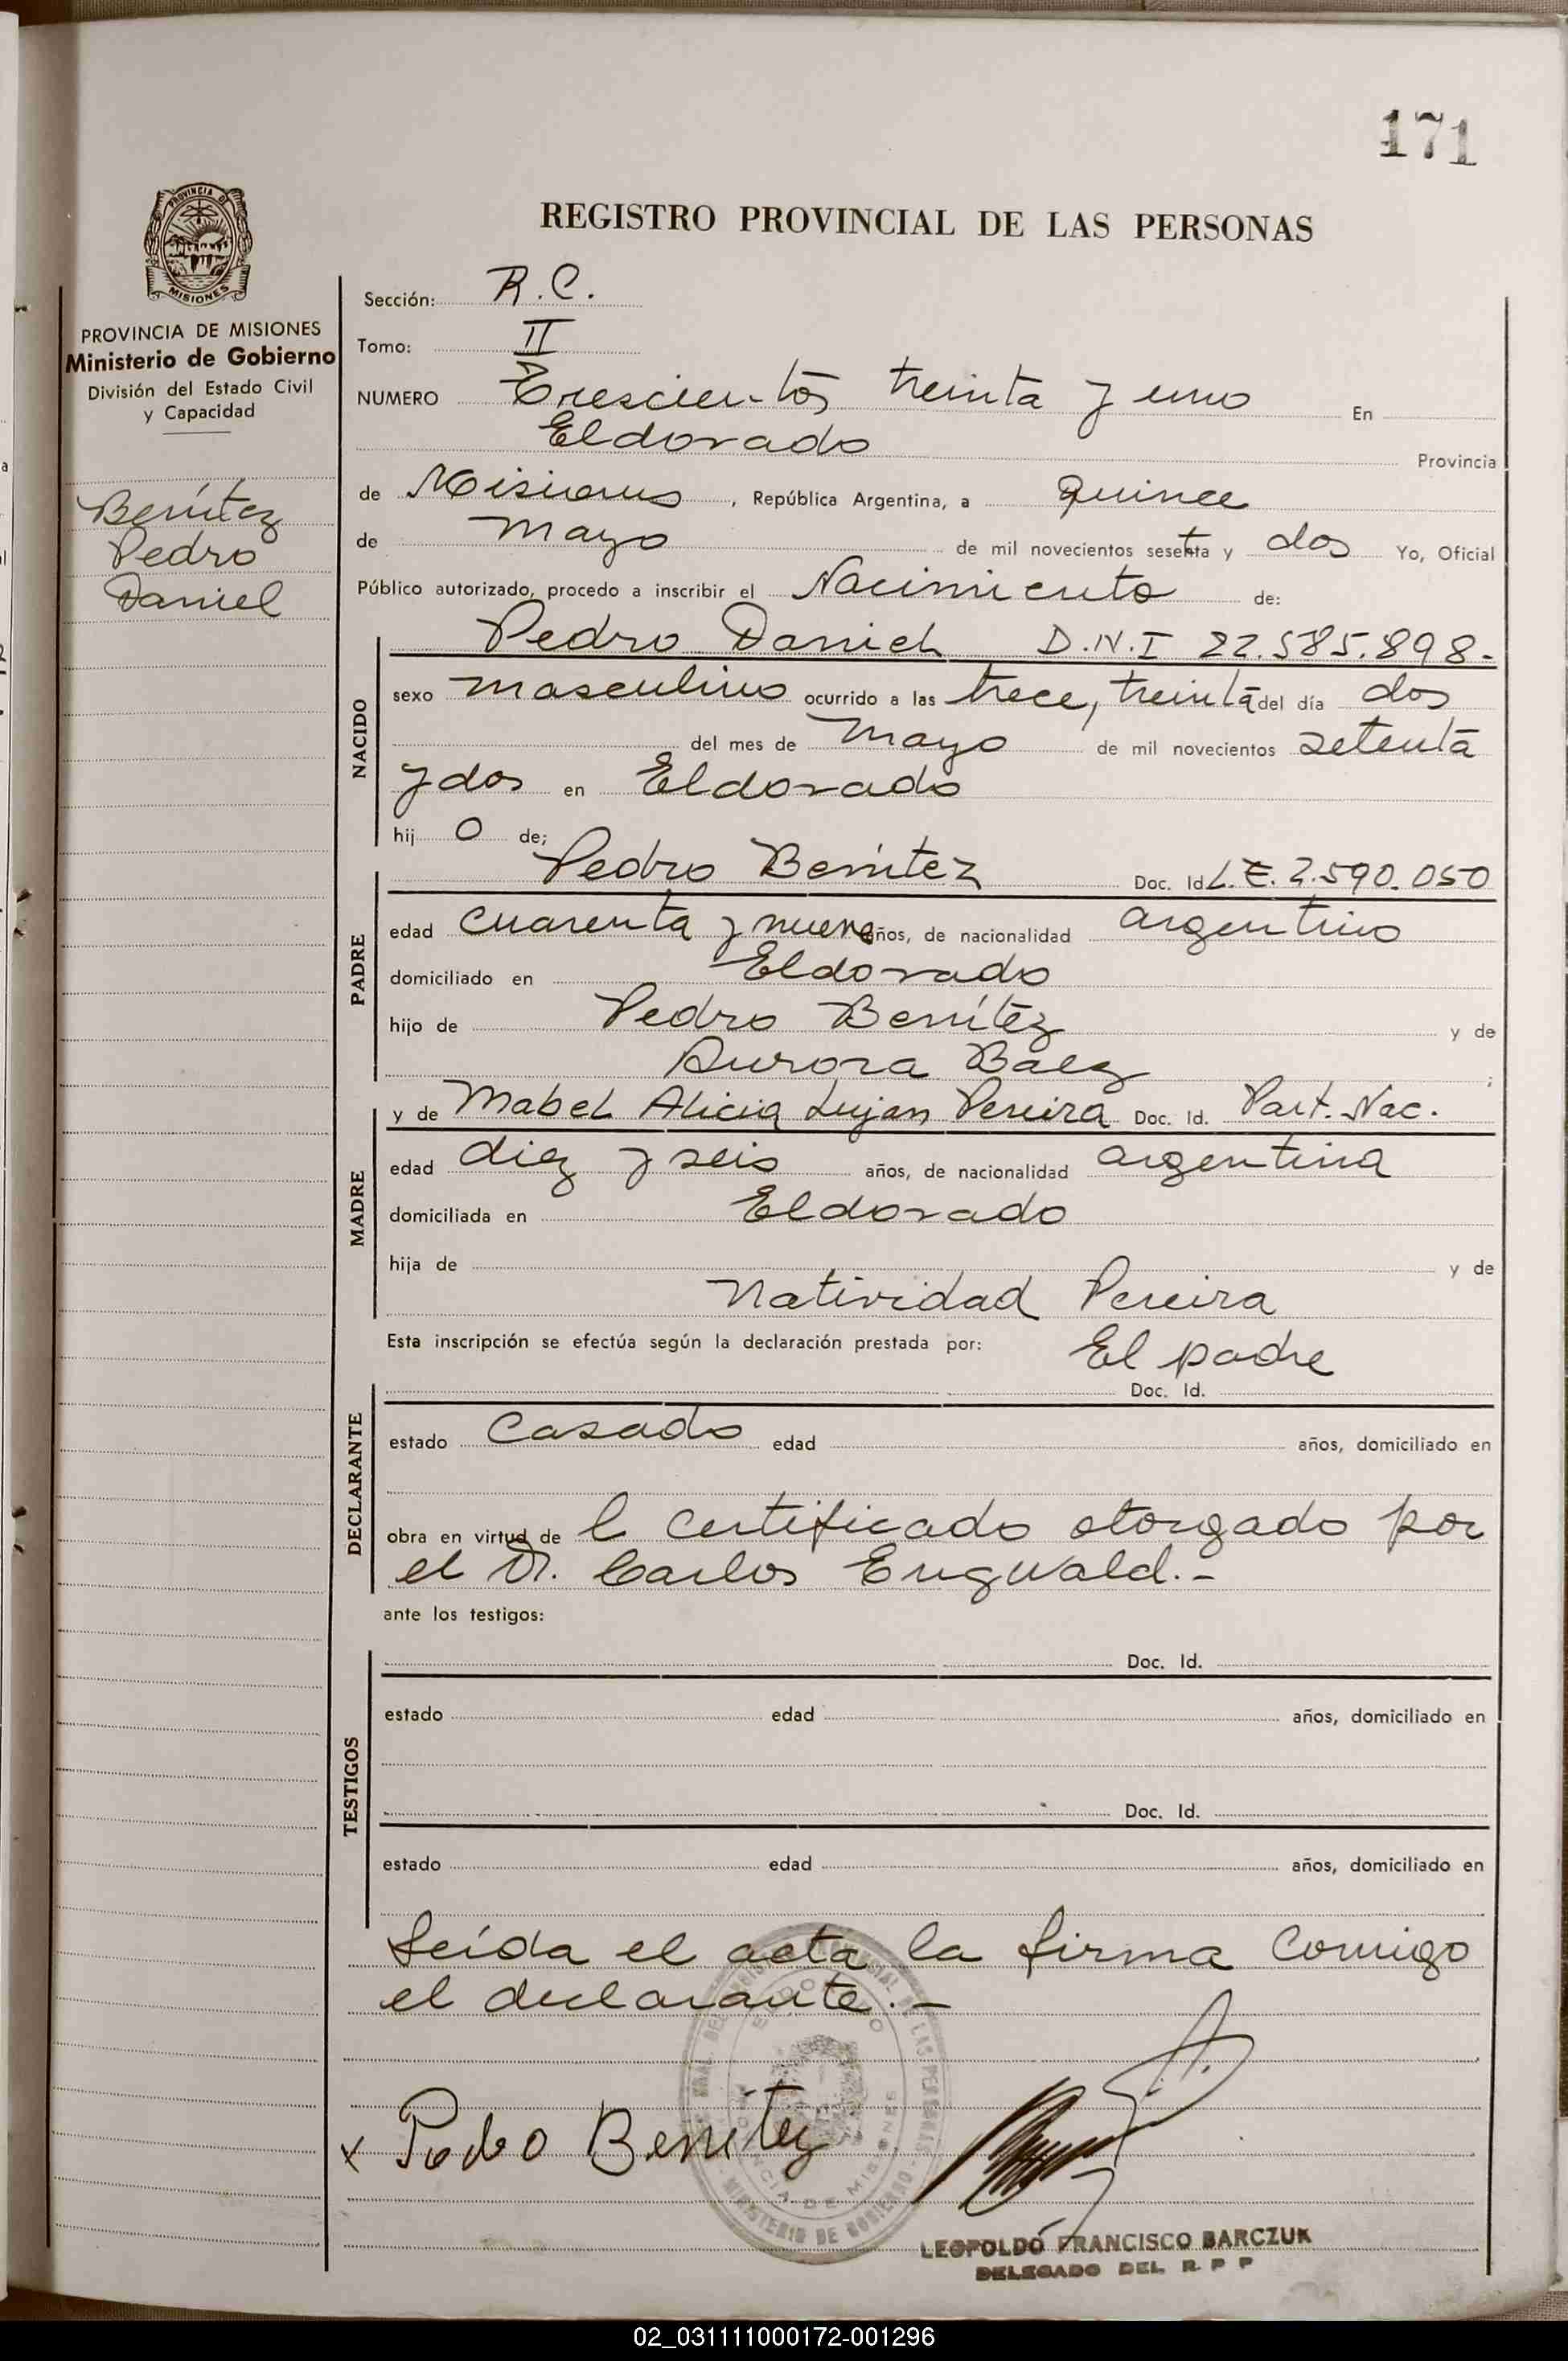 171
PROVINCIA DE
MISIONES
REGISTRO PROVINCIAL DE LAS PERSONAS
PROVINCIA DE MISIONES
Ministerio de Gobierno
División del Estado Civil
y Capacidad
Benítez
Pedro
Daniel
Sección: R.C.
Tomo: II
NUMERO Trescientos treinta y uno En
Eldorado Provincia
de Misiones, República Argentina, a Quince
de Mayo de mil novecientos setenta y dos Yo, Oficial
Público autorizado, procedo a inscribir el Nacimiento de:
NACIDO
Pedro Daniel D.N.I 22.585.898.-
sexo masculino ocurrido a las trece, treinta del día dos
del mes de Mayo de mil novecientos setenta
y dos en Eldorado
hij o de;
PADRE
Pedro Benítez Doc. Id L.E. 2.590.050
edad cuarenta y nueve años, de nacionalidad argentino
domiciliado en Eldorado
hijo de Pedro Benítez y de
Aurora Baez ;
MADRE
y de Mabel Alicia Lujan Pereira Doc. Id. Part. Nac.
edad diez y seis años, de nacionalidad argentina
domiciliada en Eldorado
hija de y de
Natividad Pereira
Esta inscripción se efectúa según la declaración prestada por: El padre
DECLARANTE
Doc. Id.
estado Casado edad años, domiciliado en
obra en virtud de l certificado otorgado por
el Dr. Carlos Engwald.-
ante los testigos:
TESTIGOS
Doc. Id.
estado edad años, domiciliado en
Doc. Id.
estado edad años, domiciliado en
Leída el acta la firma Comigo
el declarante.-
x Pedro Benitez
MINISTERIO DE GOBIERNO
PROVINCIA DE MISIONES
ELDORADO
LEOPOLDO FRANCISCO BARCZUK
DELEGADO DEL R P P
02_031111000172-001296